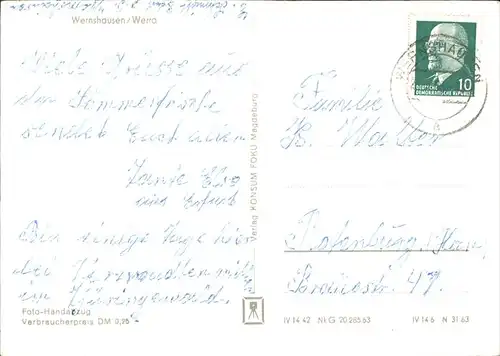 Wernshausen / Werra
Viele Grüsse aus
der Sommerfrische
sendet Euch allen
Tante Elsa
aus Erfurt
Bin einige Tage hier
bei Verwandten mit
im Thüringerwald.
Foto-Handabzug
Verbraucherpreis DM 0,25
Verlag KONSUM FOKU Magdeburg
10
DEUTSCHE
DEMOKRATISCHE REPUBLIK
Familie
K. Walter
Rotenburg
47.
IV 14 42 Nr. G 20 265 63 IV 14 6 N 31 63